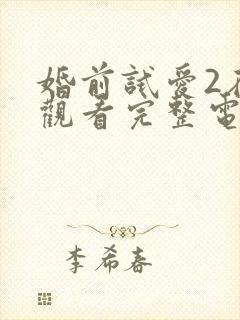 婚前試愛2在
觀看完整電
李希春